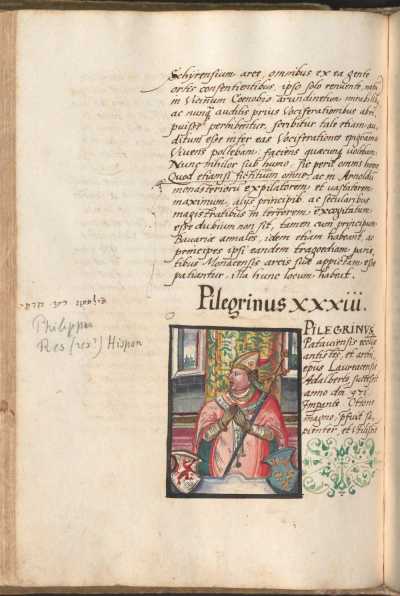 Schyrensium arce, omnibus ex ea gente
ortis consentientibus, ipso solo renuente,
in Vicinum Coenobio Arundinetum mirabilib,
ac nunq̃ auditis prius Vociferationibus abri
puisse perhibentur. scribitur tale etiam au,
ditum esse inter eas Vociferationes epigrama
Vivens pollebam, faciens quæcunq̃ volebam
Nunc nihil sub humo. sic perit omnis homo
Quod etiamsi fictitium omne, ac in Arnoldū
monasteriorū expilatorem, et vastatorem
maximum, alijs principib. ac secularibus
magistratibus in terrorem excogitatum
esse dubium non sit, tamen cum principum
Bavariæ annales, idem etiam habeant, ac
principes ipsi eandem tragœdiam parie,
tibus Monacensis arcis suæ appictam esse
patiantur, illa hunc locum habuit.
Pilegrinus XXXIII.
Philippus
Res (res?) Hispan
PILEGRINVS
Pataviensis eccl͠ie
antistes, et archi,
epũs Laureacensis
Adalberto successit
anno dn̄i 971.
Imperante Ottone
magno, p̃fuit sa,
pienter, et Vtiliter